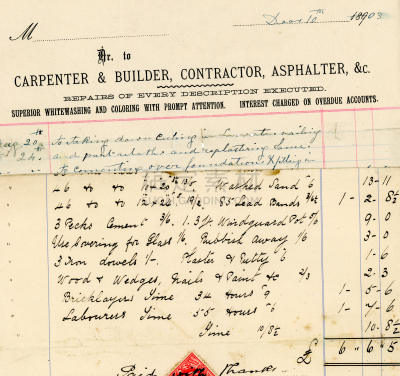 Decr 10th 1890
M
Dr. to
CARPENTER & BUILDER, CONTRACTOR, ASPHALTER, &c.
REPAIRS OF EVERY DESCRIPTION EXECUTED.
SUPERIOR WHITEWASHING AND COLORING WITH PROMPT ATTENTION. INTEREST CHARGED ON OVERDUE ACCOUNTS.
20th To taking down Ceiling in
24th and and replastering same
To Cementing over foundations
46 to Washed Sand 6 13-11
46 to 85 Lead Bands 1-2-8½
3 Pecks Cement 3/6. 1. 3ft Windguard Pot 9-0
Use Covering for Glass 1/6 Rubbish Away 1/6 3-0
3 Iron dowels 1/- Plaster & Putty 6 1-6
Wood & Wedges, Nails & Paint &c 2/3 2-3
Bricklayers Time 34 Hours 9 1-5-6
Labourers Time 55 Hours 6 1-7-6
Time 10/8½ 10-8½
£ 6 6 5
Paid Thanks